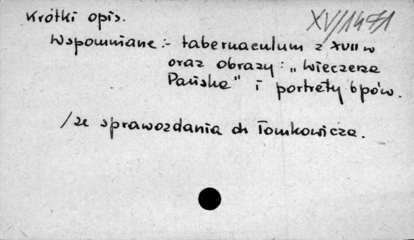 Krótki opis.
XV/1471
Wspomniane:- tabernaculum z XVII w
oraz obrazy: „Wieczerza
Pańska" i portrety bpów.
/ze sprawozdania dr Tomkowicza.